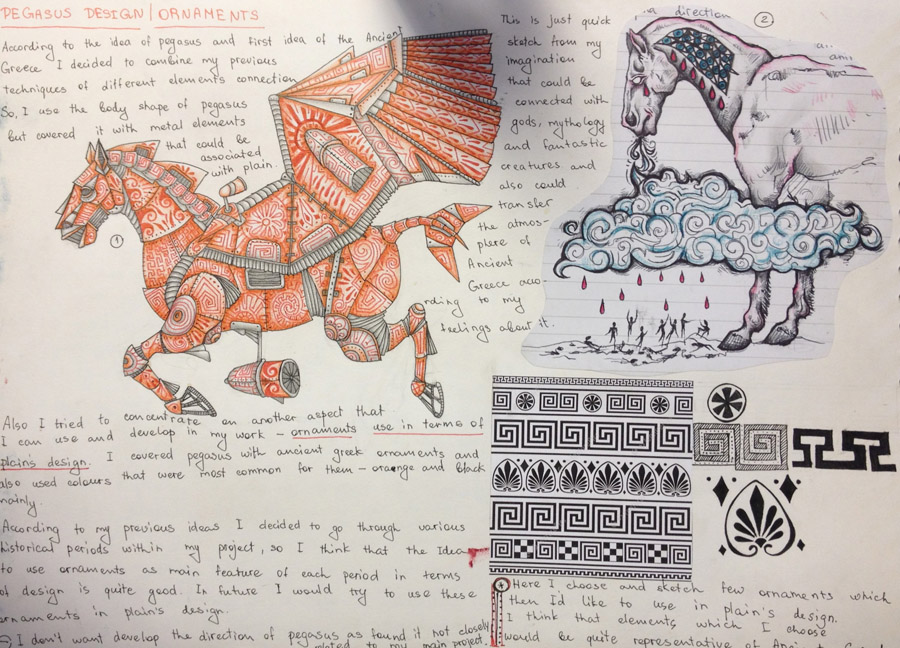 PEGASUS DESIGN | ORNAMENTS
According to the idea of pegasus and first idea of the Ancient
Greece I decided to combine my previous
techniques of different elements connection
So, I use the body shape of pegasus
but covered it with metal elements
that could be
associated
with plain.
1
This is just quick
sketch from my
imagination
that could be
connected with
gods, mythology
and fantastic
creatures and
also could
transfer
the atmos-
phere of
Ancient
Greece acco-
rding to my
feelings about it.
direction
2
Also I tried to concentrate on another aspect that
I can use and develop in my work – ornaments use in terms of
plain's design. I covered pegasus with ancient greek ornaments and
also used colours that were most common for them – oraenge and black
mainly
According to my previous ideas I decided to go through various
historical periods within my project, so I think that the Idea
to use ornaments as main feature of each period in terms
of design is quite good. In future I would try to use these
ornaments in plain's design.
I don't want develop the direction of pegasus as found it not closely
to my main project.
Here I choose and sketch few ornaments which
then I'd like to use in plain's design.
I think that elements which I choose
would be quite representative of